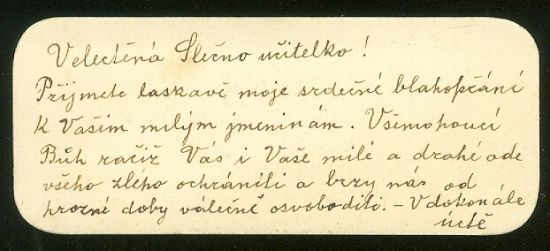 Velectěná Slečno učitelko!
Přijmete laskavě moje srdečné blahopřání
K Vaším milým jmeninám. Všemohoucí
Bůh račiž Vás i Vaše milé a drahé ode
všeho zlého ochrániti a brzy nás od
hrozné doby válečné osvoboditi. – V dokonale
úctě